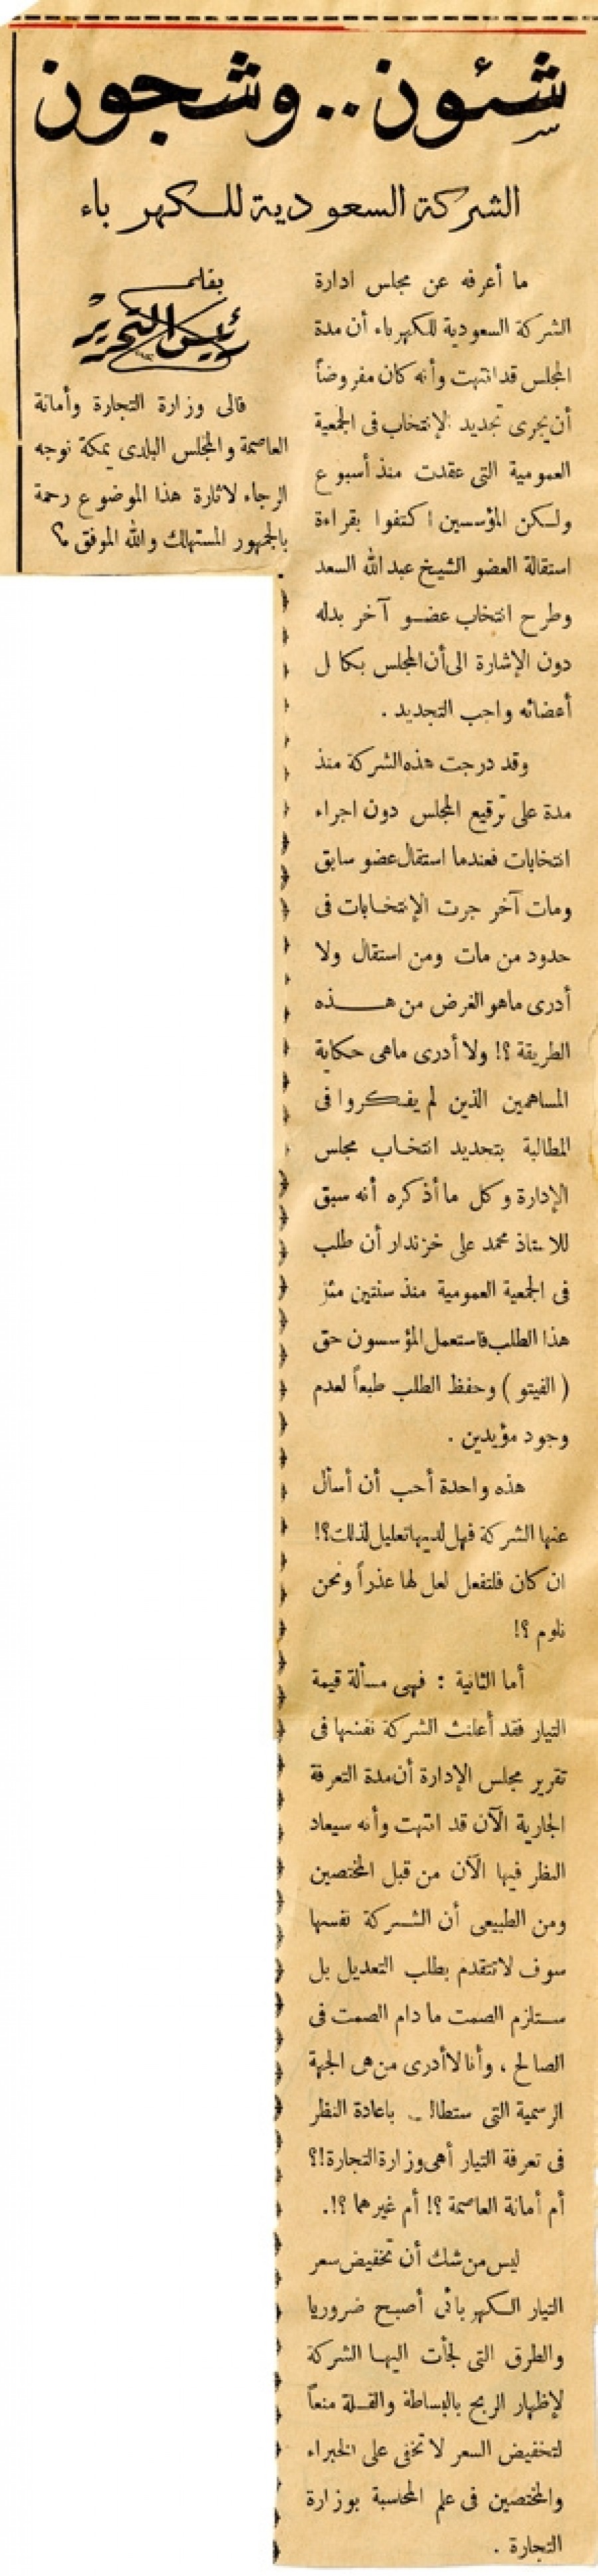 شئون .. وشجون
الشركة السعودية للكهرباء
بقلم
رئيس التحرير
ما أعرفه عن مجلس ادارة
الشركة السعودية للكهرباء أن مدة
المجلس قد انتهت وأنه كان مفروضاً
أن يجرى تجديد الإنتخاب فى الجمعية
العمومية التى عقدت منذ أسبوع
ولكن المؤسسين اكتفوا بقراءة
استقالة العضو الشيخ عبد الله السعد
وطرح انتخاب عضو آخر بدله
دون الإشارة الى أن المجلس بكامل
أعضائه واجب التجديد .
وقد درجت هذه الشركة منذ
مدة على ترقيع المجلس دون اجراء
انتخابات فعندما استقال عضو سابق
ومات آخر جرت الإنتخابات فى
حدود من مات ومن استقال ولا
أدرى ماهو الغرض من هذه
الطريقة ؟! ولا أدرى ماهى حكاية
المساهمين الذين لم يفكروا فى
المطالبة بتجديد انتخاب مجلس
الإدارة وكل ما أذكره أنه سبق
للاستاذ محمد على خزندار أن طلب
فى الجمعية العمومية منذ سنتين مثل
هذا الطلب فاستعمل المؤسسون حق
( الفيتو ) وحفظ الطلب طبعاً لعدم
وجود مؤيدين .
هذه واحدة أحب أن أسأل
عنها الشركة فهل لديها تعليل لذلك ؟!
ان كان فلتفعل لعل لها عذراً ونحن
نلوم ؟!
أما الثانية : فهى مسألة قيمة
التيار فقد أعلنت الشركة نفسها فى
تقرير مجلس الإدارة أن مدة التعرفة
الجارية الآن قد انتهت وأنه سيعاد
النظر فيها الآن من قبل المختصين
ومن الطبيعى أن الشركة نفسها
سوف لا تتقدم بطلب التعديل بل
ستلزم الصمت ما دام الصمت فى
الصالح ، وأنا لا أدرى من هى الجهة
الرسمية التى ستطالب باعادة النظر
فى تعرفة التيار أهى وزارة التجارة !؟
أم أمانة العاصمة ؟! أم غيرهما ؟!.
ليس من شك أن تخفيض سعر
التيار الكهربائى أصبح ضروريا
والطرق التى لجأت اليها الشركة
لإظهار الربح بالبساطة والقلة منعاً
لتخفيض السعر لا تخفى على الخبراء
والمختصين فى علم المحاسبة بوزارة
التجارة .
فالى وزارة التجارة وأمانة
العاصمة والمجلس البلدى بمكة نوجه
الرجاء لاثارة هذا الموضوع رحمة
بالجمهور المستهلك والله الموفق ؟